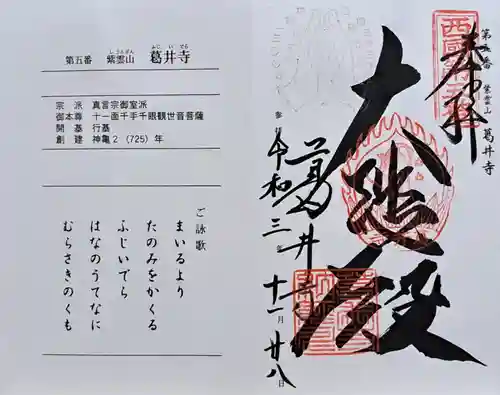 第五番 紫雲山 葛井寺
しうんざん ふじいでら
宗派 真言宗御室派
御本尊 十一面千手千眼観世音菩薩
開基 行基
創建 神亀2(725)年
ご詠歌
まいるより
たのみをかくる
ふじいでら
はなのうてなに
むらさきのくも
第五番 紫雲山 葛井寺
奉拝
大悲殿
葛井寺
参拝 令和三年十一月廿八日